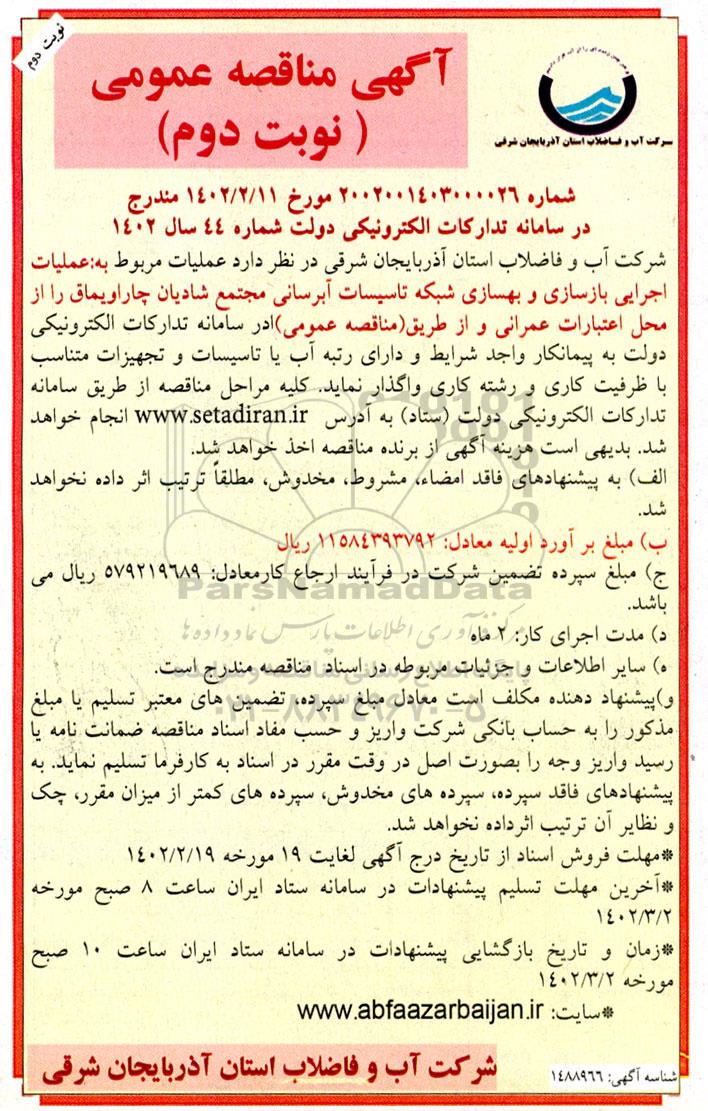 نوبت دوم
آگهی مناقصه عمومی
( نوبت دوم)
شرکت آب و فاضلاب استان آذربایجان شرقی
شماره ۲۰۰۲۰۰۱۴۰۳۰۰۰۰۲۶ مورخ ۱۴۰۲/۲/۱۱ مندرج
در سامانه تدارکات الکترونیکی دولت شماره ٤٤ سال ۱۴۰۲
شرکت آب و فاضلاب استان آذربایجان شرقی در نظر دارد عملیات مربوط به:عملیات
اجرایی بازسازی و بهسازی شبکه تاسیسات آبرسانی مجتمع شادیان چاراویماق را از
محل اعتبارات عمرانی و از طریق(مناقصه عمومی)ادر سامانه تدارکات الکترونیکی
دولت به پیمانکار واجد شرایط و دارای رتبه آب یا تاسیسات و تجهیزات متناسب
با ظرفیت کاری و رشته کاری واگذار نماید. کلیه مراحل مناقصه از طریق سامانه
تدارکات الکترونیکی دولت (ستاد) به آدرس www.setadiran.ir انجام خواهد
شد. بدیهی است هزینه آگهی از برنده مناقصه اخذ خواهد شد.
الف) به پیشنهادهای فاقد امضاء، مشروط، مخدوش، مطلقاً ترتیب اثر داده نخواهد
شد.
ب) مبلغ بر آورد اولیه معادل: ۱۱۵۸٤۳۹۳۷۹۲ ریال
ج) مبلغ سپرده تضمین شرکت در فرآیند ارجاع کارمعادل: ۵۷۹۲۱۹۶۸۹ ریال می
باشد.
د) مدت اجرای کار: ۲ ماه
ه) سایر اطلاعات و جزئیات مربوطه در اسناد مناقصه مندرج است.
و)پیشنهاد دهنده مکلف است معادل مبلغ سپرده، تضمین های معتبر تسلیم یا مبلغ
مذکور را به حساب بانکی شرکت واریز و حسب مفاد اسناد مناقصه ضمانت نامه یا
رسید واریز وجه را بصورت اصل در وقت مقرر در اسناد به کارفرما تسلیم نماید. به
پیشنهادهای فاقد سپرده، سپرده های مخدوش، سپرده های کمتر از میزان مقرر، چک
و نظایر آن ترتیب اثرداده نخواهد شد.
*مهلت فروش اسناد از تاریخ درج آگهی لغایت ۱۹ مورخه ۱٤۰۲/۲/۱۹
*آخرین مهلت تسلیم پیشنهادات در سامانه ستاد ایران ساعت ۸ صبح مورخه
۱٤۰۲/۳/۲
*زمان و تاریخ بازگشایی پیشنهادات در سامانه ستاد ایران ساعت ۱۰ صبح
مورخه ۱٤۰۲/۳/۲
*سایت: www.abfaazarbaijan.ir
شرکت آب و فاضلاب استان آذربایجان شرقی
شناسه آگهی: ۱٤۸۸۹۶۶
ParsNamadData
مرکز فن آوری اطلاعات پارس نماد داده ها